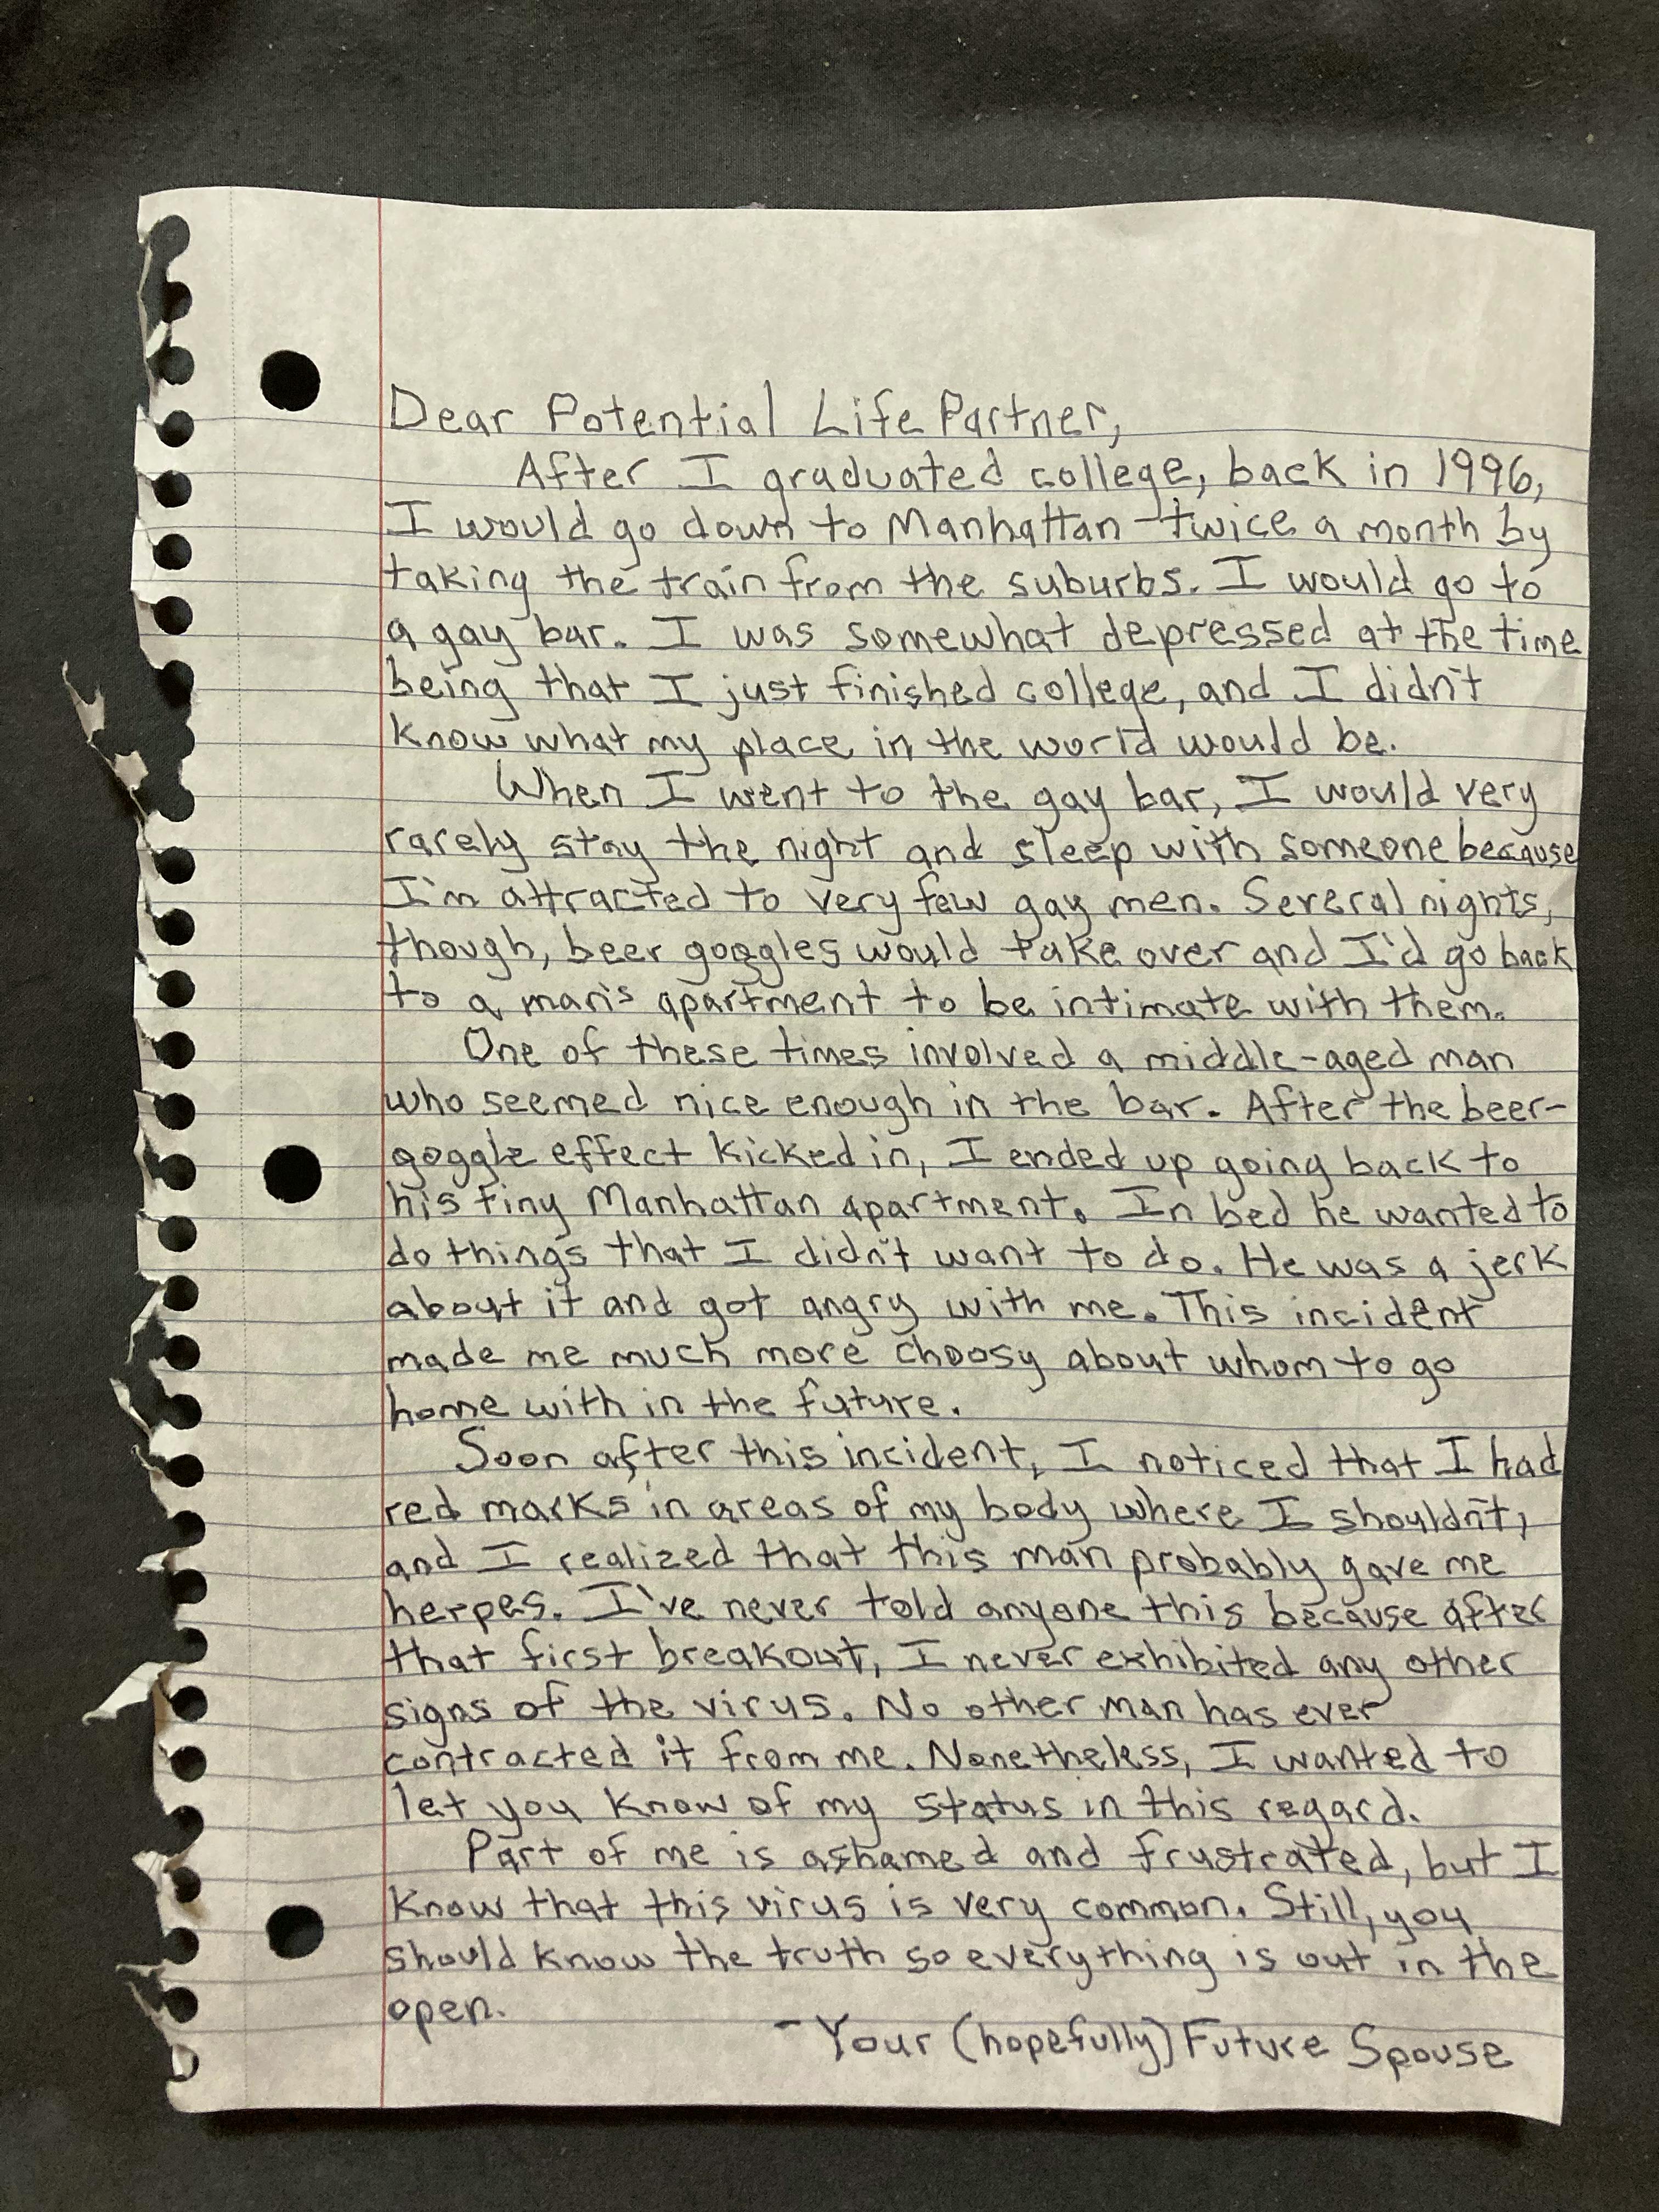 Dear Potential Life Partner,
After I graduated college, back in 1996,
I would go down to Manhattan twice a month by
taking the train from the suburbs. I would go to
a gay bar. I was somewhat depressed at the time
being that I just finished college, and I didn't
know what my place in the world would be.
When I went to the gay bar, I would very
rarely stay the night and sleep with someone because
I'm attracted to very few gay men. Several nights,
though, beer goggles would take over and I'd go back
to a man's apartment to be intimate with them.
One of these times involved a middle-aged man
who seemed nice enough in the bar. After the beer-
goggle effect kicked in, I ended up going back to
his tiny Manhattan apartment. In bed he wanted to
do things that I didn't want to do. He was a jerk
about it and got angry with me. This incident
made me much more choosy about whom to go
home with in the future.
Soon after this incident, I noticed that I had
red marks in areas of my body where I shouldn't,
and I realized that this man probably gave me
herpes. I've never told anyone this because after
that first breakout, I never exhibited any other
signs of the virus. No other man has ever
contracted it from me. Nonetheless, I wanted to
let you know of my status in this regard.
Part of me is ashamed and frustrated, but I
know that this virus is very common. Still, you
should know the truth so everything is out in the
open.
- Your (hopefully) Future Spouse